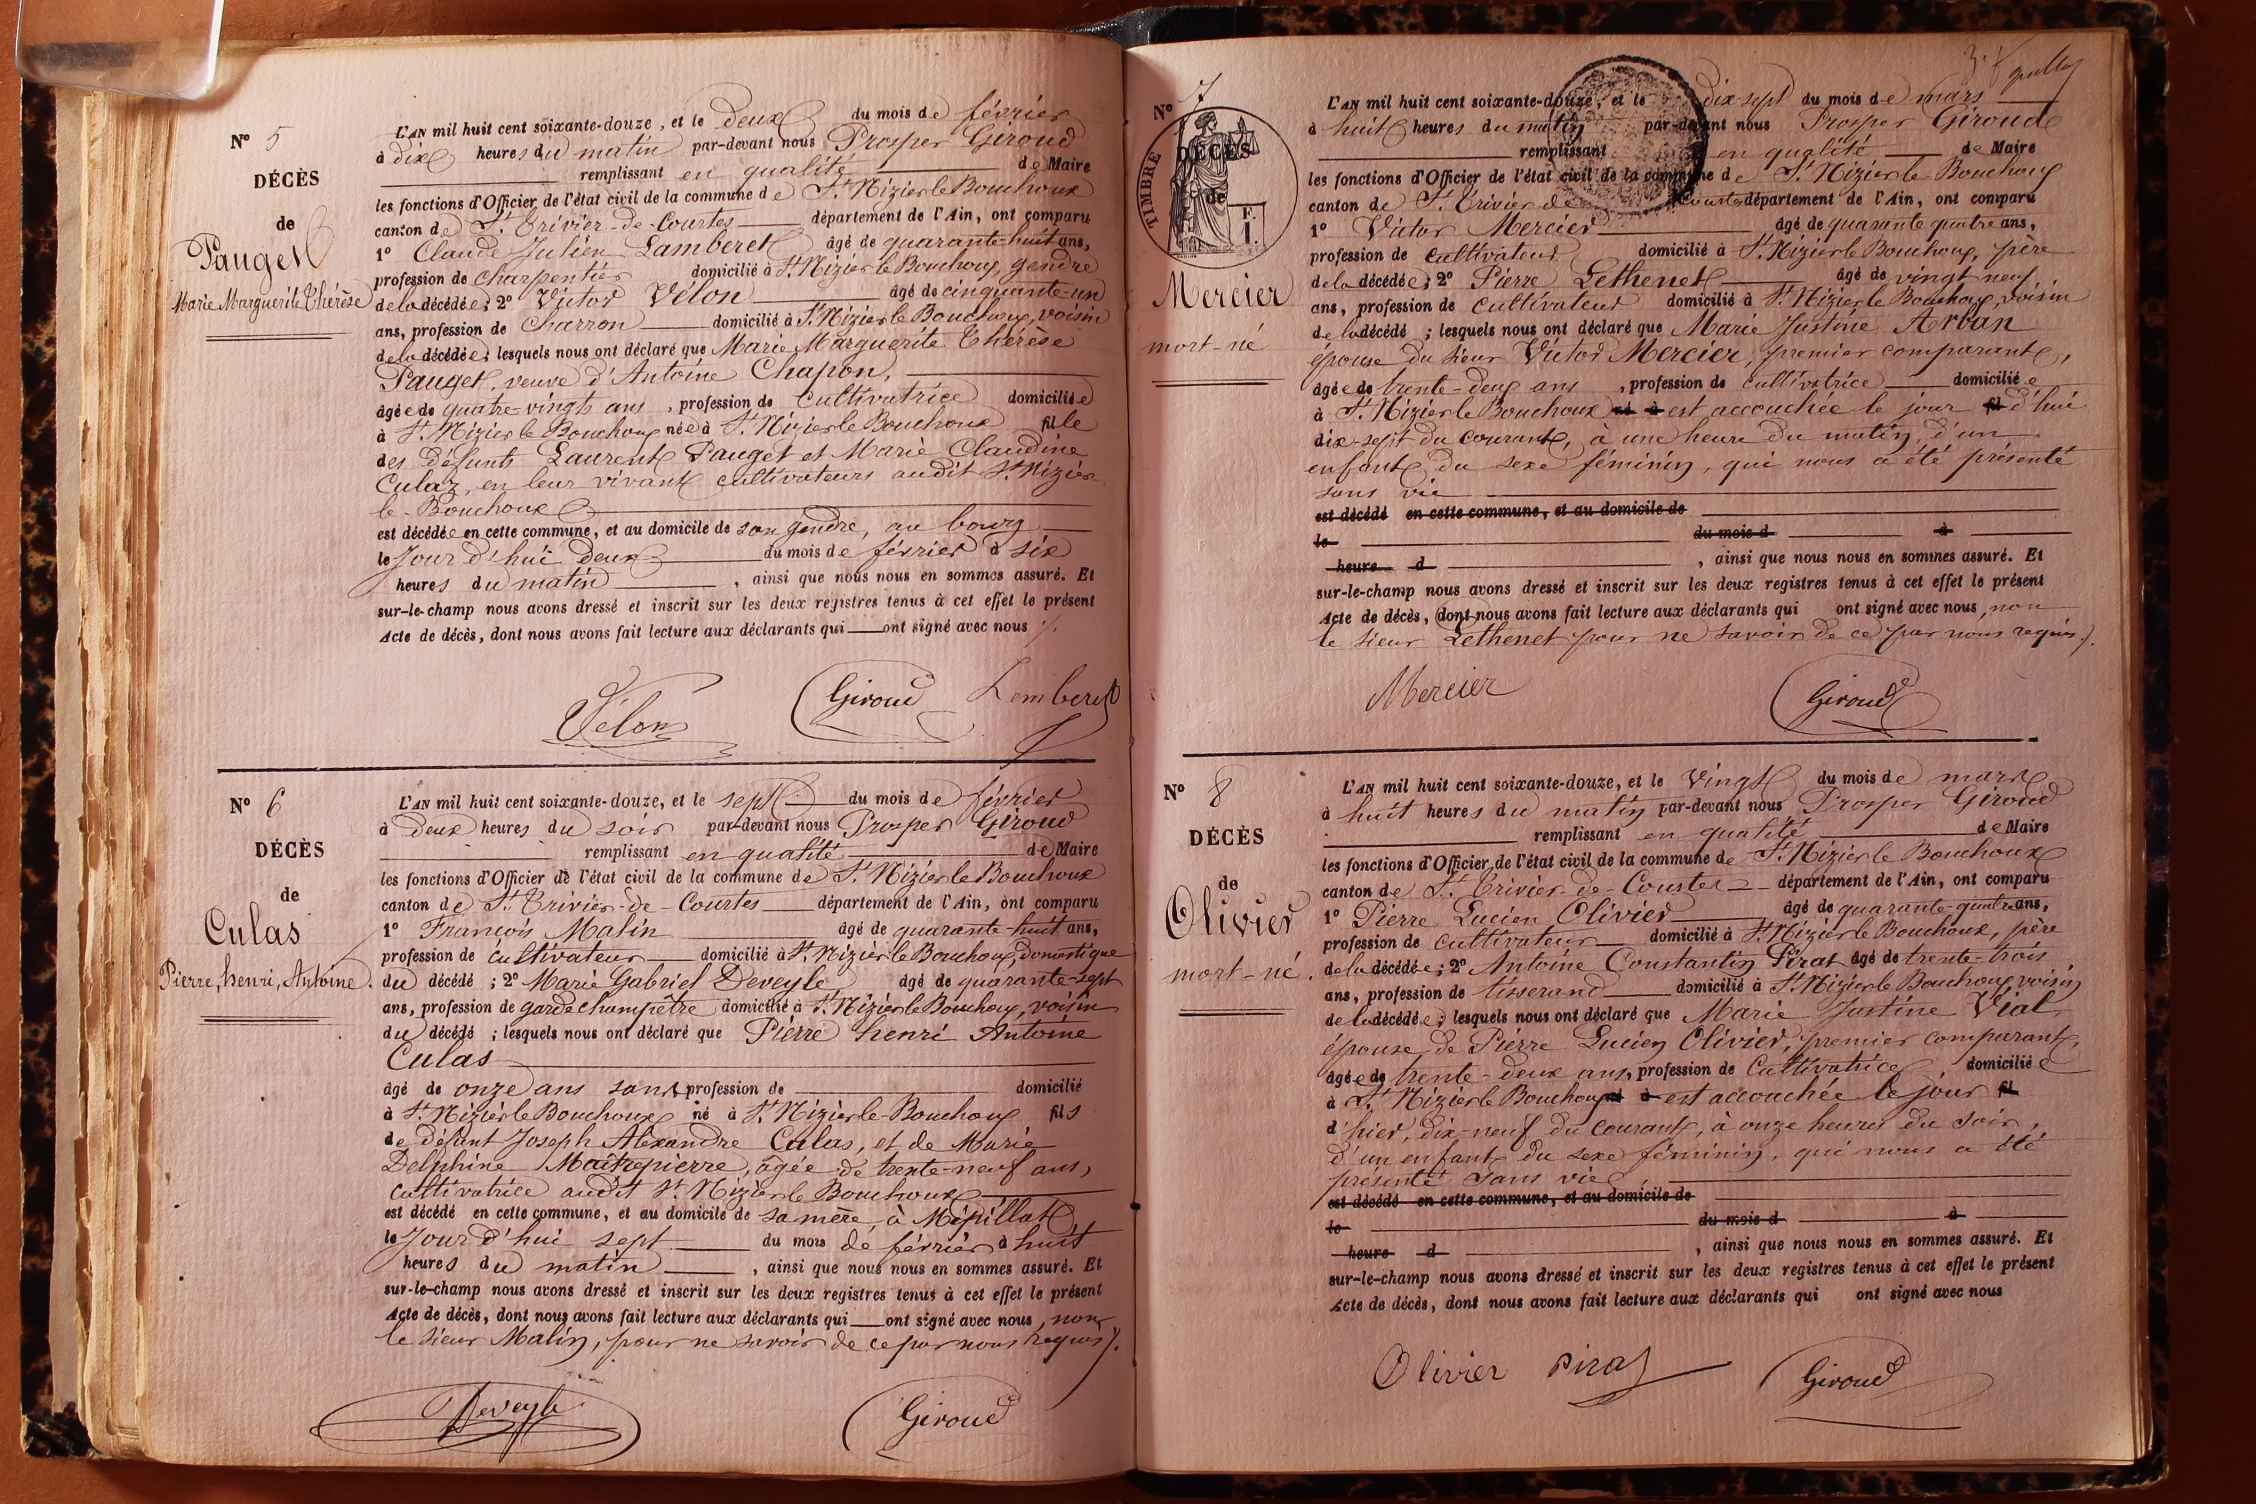 N° 5
DÉCÈS
de
Pauget
Marie Marguerite Thérèse
L'AN mil huit cent soixante-douze, et le deux du mois de février
à dix heures du matin par-devant nous Prosper Giroud
remplissant en qualité de Maire
les fonctions d'Officier de l'état civil de la commune de St Nizier le Bouchoux
canton de St Trivier-de-Courtes département de l'Ain, ont comparu
1° Claude Julien Lamberet âgé de quarante-huit ans,
profession de charpentier domicilié à St Nizier le Bouchoux, gendre
de la décédée; 2° Victor Vélon âgé de cinquante-un
ans, profession de charron domicilié à St Nizier le Bouchoux, voisin
de la décédée; lesquels nous ont déclaré que Marie Marguerite Thérèse
Pauget, veuve d'Antoine Chapon,
âgée de quatre-vingts ans, profession de cultivatrice domiciliée
à St Nizier le Bouchoux née à St Nizier le Bouchoux fille
des défunts Laurent Pauget et Marie Claudine
Culaz, en leur vivant cultivateurs audit St Nizier
le-Bouchoux
est décédée en cette commune, et au domicile de son gendre, au bourg
le Jour d'hui deux du mois de février à six
heures du matin, ainsi que nous nous en sommes assuré. Et
sur-le-champ nous avons dressé et inscrit sur les deux registres tenus à cet effet le présent
Acte de décès, dont nous avons fait lecture aux déclarants qui ont signé avec nous ./.
Vélon Giroud Lamberet
N° 6
DÉCÈS
de
Culas
Pierre, henri, Antoine.
L'AN mil huit cent soixante-douze, et le sept du mois de février
à deux heures du soir par-devant nous Prosper Giroud
remplissant en qualité de Maire
les fonctions d'Officier de l'état civil de la commune de St Nizier le Bouchoux
canton de St Trivier-de-Courtes département de l'Ain, ont comparu
1° François Malin âgé de quarante-huit ans,
profession de cultivateur domicilié à St Nizier le Bouchoux, domestique
du décédé; 2° Marie Gabriel Deveyle âgé de quarante-sept
ans, profession de garde champêtre domicilié à St Nizier le Bouchoux, voisin
du décédé; lesquels nous ont déclaré que Pierre henri Antoine
Culas
âgé de onze ans sans profession de domicilié
à St Nizier le Bouchoux né à St Nizier-le-Bouchoux fils
de défunt Joseph Alexandre Culas, et de Marie
Delphine Maîtrepierre, âgée de trente-neuf ans,
cultivatrice audit St Nizier le Bouchoux
est décédé en cette commune, et au domicile de sa mère, à Mépillat
le Jour d'hui sept du mois de février à huit
heures du matin, ainsi que nous nous en sommes assuré. Et
sur-le-champ nous avons dressé et inscrit sur les deux registres tenus à cet effet le présent
Acte de décès, dont nous avons fait lecture aux déclarants qui ont signé avec nous, non
le sieur Malin, pour ne savoir de ce par nous requis ./.
Deveyle Giroud
N° 7
TIMBRE
DÉCÈS
de
F.
1.
Mercier
mort-né
L'AN mil huit cent soixante-douze, et le dix-sept du mois de mars
à huit heures du matin par-devant nous Prosper Giroud
remplissant en qualité de Maire
les fonctions d'Officier de l'état civil de la commune de St Nizier le Bouchoux
canton de St Trivier de Courtes département de l'Ain, ont comparu
1° Victor Mercier âgé de quarante quatre ans,
profession de cultivateur domicilié à St Nizier le Bouchoux, père
de la décédée; 2° Pierre Lethenet âgé de vingt neuf
ans, profession de cultivateur domicilié à St Nizier le Bouchoux, voisin
de la décédé; lesquels nous ont déclaré que Marie Justine Arban
épouse du sieur Victor Mercier, premier comparant,
âgée de trente-deux ans, profession de cultivatrice domiciliée
à St Nizier le Bouchoux et à est accouchée le jour fil d'hui
dix-sept du courant, à une heure du matin, d'un
enfant du sexe féminin, qui nous a été présenté
sans vie
est décédé en cette commune, et au domicile de
le du mois d à
heure d, ainsi que nous nous en sommes assuré. Et
sur-le-champ nous avons dressé et inscrit sur les deux registres tenus à cet effet le présent
Acte de décès, dont nous avons fait lecture aux déclarants qui ont signé avec nous, non
le sieur Lethenet pour ne savoir de ce par nous requis ./.
Mercier Giroud
N° 8
DÉCÈS
de
Olivier
mort-né.
L'AN mil huit cent soixante-douze, et le vingt du mois de mars
à huit heures du matin par-devant nous Prosper Giroud
remplissant en qualité de Maire
les fonctions d'Officier de l'état civil de la commune de St Nizier le Bouchoux
canton de St Trivier-de-Courtes département de l'Ain, ont comparu
1° Pierre Lucien Olivier âgé de quarante-quatre ans,
profession de cultivateur domicilié à St Nizier le Bouchoux, père
de la décédée; 2° Antoine Constantin Pirat âgé de trente-trois
ans, profession de tisserand domicilié à St Nizier le Bouchoux, voisin
de la décédée; lesquels nous ont déclaré que Marie Justine Vial
épouse de Pierre Lucien Olivier, premier comparant,
âgée de trente-deux ans, profession de Cultivatrice domiciliée
à St Nizier le Bouchoux né à est accouchée le jour fil
d'hier, dix-neuf du courant, à onze heures du soir,
d'un enfant du sexe féminin, qui nous a été
présenté sans vie,
est décédé en cette commune, et au domicile de
le du mois d à
heure d, ainsi que nous nous en sommes assuré. Et
sur-le-champ nous avons dressé et inscrit sur les deux registres tenus à cet effet le présent
Acte de décès, dont nous avons fait lecture aux déclarants qui ont signé avec nous
Olivier Pirat Giroud